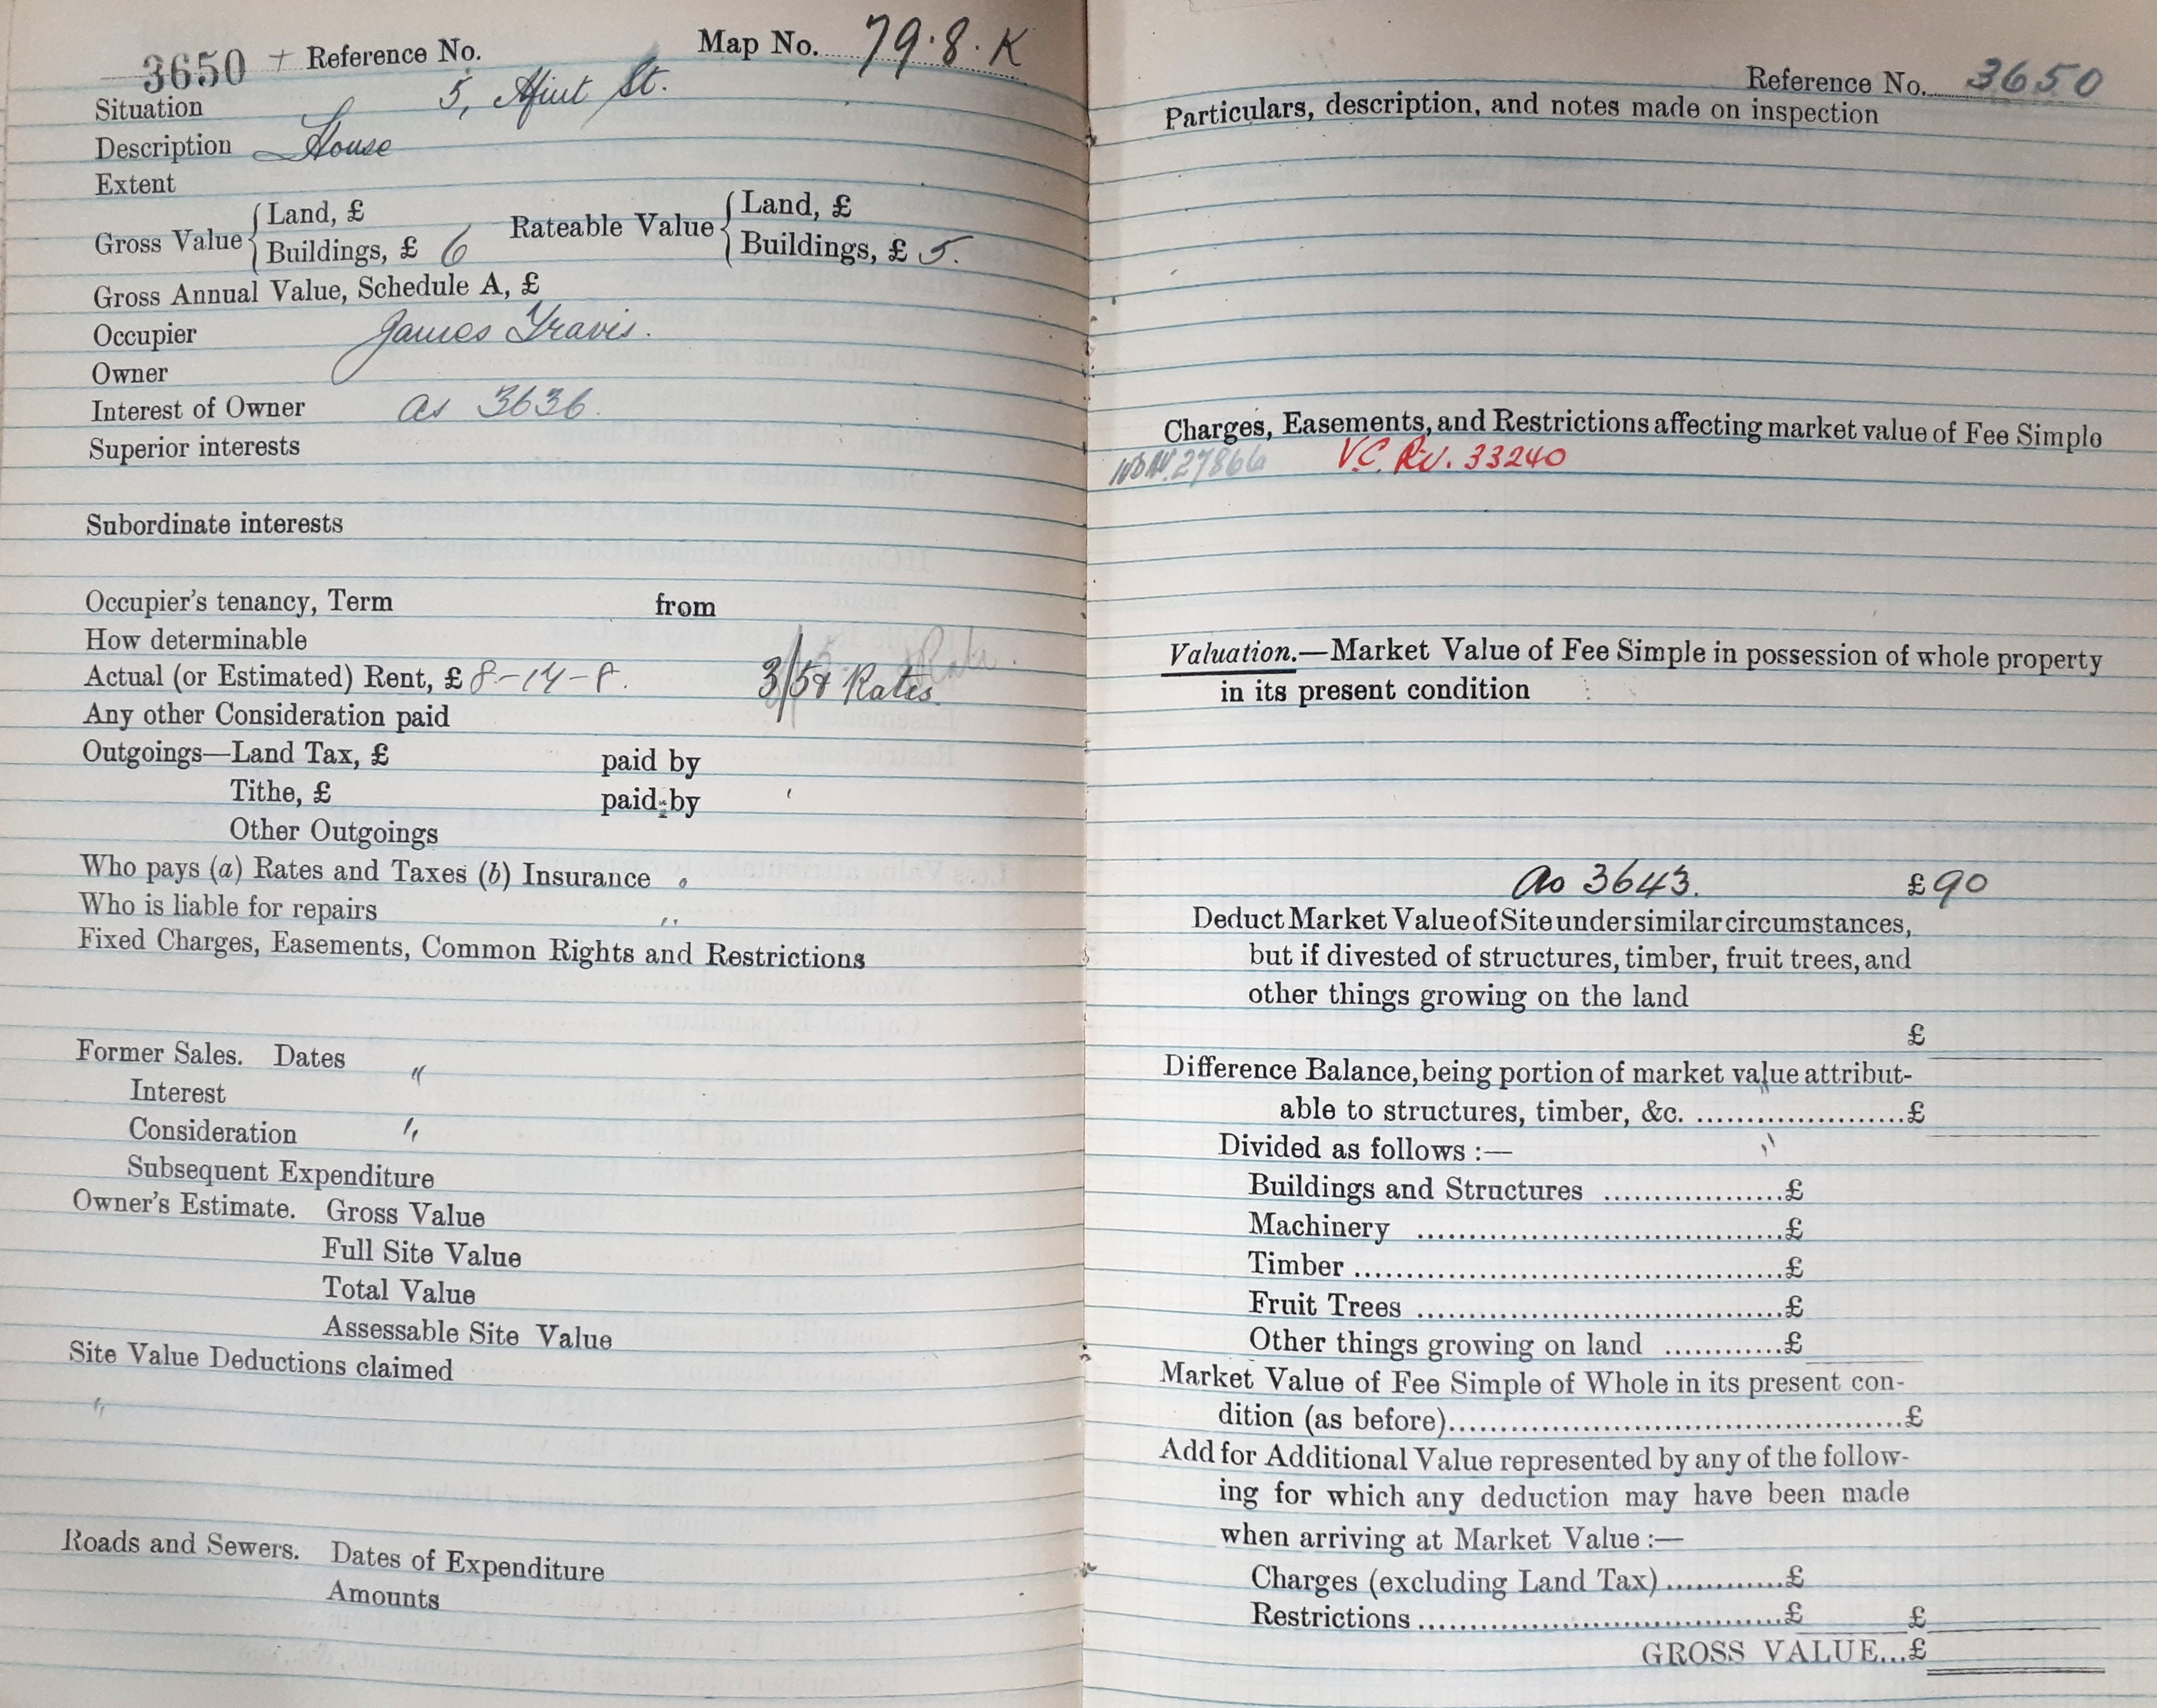 3650 + Reference No. Map No. 79.8.K
Situation 5, St.
Description House
Extent
Gross Value { Land, £ Rateable Value { Land, £
Buildings, £ 6 Buildings, £ 5.
Gross Annual Value, Schedule A, £
Occupier James Travis.
Owner
Interest of Owner as 3636.
Superior interests
Subordinate interests
Occupier's tenancy, Term from
How determinable
Actual (or Estimated) Rent, £ 8-14-8. 3/5 & Rates.
Any other Consideration paid
Outgoings—Land Tax, £ paid by
Tithe, £ paid by
Other Outgoings
Who pays (a) Rates and Taxes (b) Insurance
Who is liable for repairs "
Fixed Charges, Easements, Common Rights and Restrictions
Former Sales. Dates "
Interest
Consideration "
Subsequent Expenditure
Owner's Estimate. Gross Value
Full Site Value
Total Value
Assessable Site Value
Site Value Deductions claimed
"
Roads and Sewers. Dates of Expenditure
Amounts
Reference No. 3650
Particulars, description, and notes made on inspection
Charges, Easements, and Restrictions affecting market value of Fee Simple
27866 V.C. Rv. 33240
Valuation.—Market Value of Fee Simple in possession of whole property
in its present condition
as 3643. £90
Deduct Market Value of Site under similar circumstances,
but if divested of structures, timber, fruit trees, and
other things growing on the land
£
Difference Balance, being portion of market value attribut-
able to structures, timber, &c. ........................£
Divided as follows :— "
Buildings and Structures ...................£
Machinery .......................................£
Timber .............................................£
Fruit Trees .......................................£
Other things growing on land ............£
Market Value of Fee Simple of Whole in its present con-
dition (as before)................................................£
Add for Additional Value represented by any of the follow-
ing for which any deduction may have been made
when arriving at Market Value :—
Charges (excluding Land Tax)............£
Restrictions.......................................£ £
GROSS VALUE...£